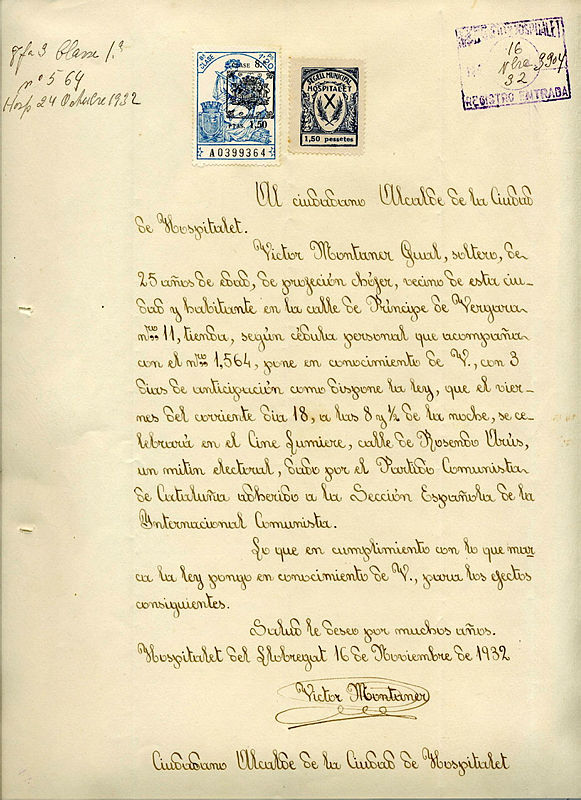 Clase 1.ª
nº 564
24 Octubre 1932
8ª CLASE 1'20
CLASE 8ª
PTAS. 1,50
A0399364
SEGELL MUNICIPAL
HOSPITALET
X
1,50 pessetes
HOSPITALET
16
Nbre 3904
32
REGISTRO ENTRADA
Al ciudadano Alcalde de la Ciudad
de Hospitalet.
Victor Montaner Gual, soltero, de
25 años de edad, de profesión chófer, vecino de esta ciu-
dad y habitante en la calle de Príncipe de Vergara
nro 11, tienda, según cédula personal que acompaña
con el nro 1,564, pone en conocimiento de V., con 3
dias de anticipación como dispone la ley, que el vier-
nes del corriente dia 18, a las 8 y ½ de la noche, se ce-
lebrará en el Cine Lumiere, calle de Rosendo Arús,
un mitin electoral, dado por el Partido Comunista
de Cataluña adherido a la Sección Española de la
Internacional Comunista.
Lo que en cumplimiento con lo que mar-
ca la ley pongo en conocimiento de V., para los efectos
consiguientes.
Salud le deseo por muchos años.
Hospitalet del Llobregat 16 de Noviembre de 1932
Victor Montaner
Ciudadano Alcalde de la Ciudad de Hospitalet